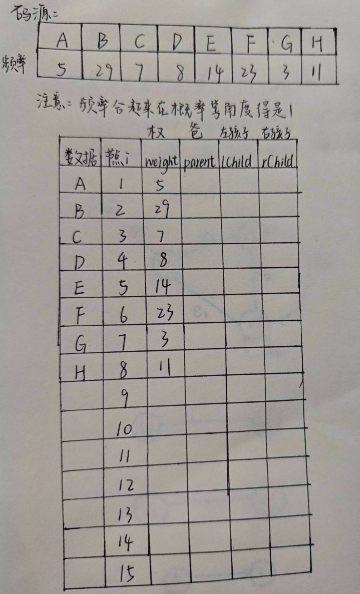 码源:
A B C D E F G H
频率 5 29 7 8 14 23 3 11
注意: 频率合起来在概率等角度得是1
权 爸 左孩子 右孩子
数据 节点i weight parent lChild rChild
A 1 5
B 2 29
C 3 7
D 4 8
E 5 14
F 6 23
G 7 3
H 8 11
9
10
11
12
13
14
15